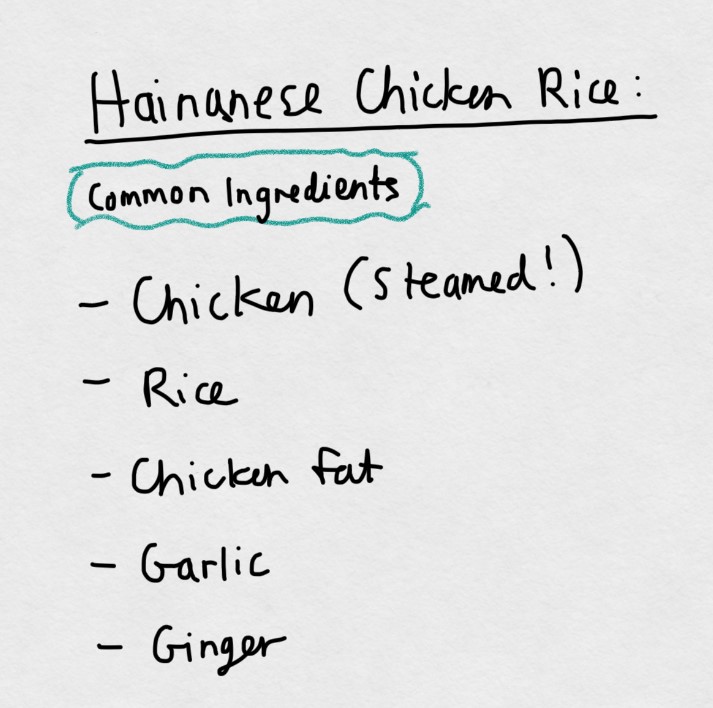 Hainanese Chicken Rice:
Common Ingredients
- Chicken (Steamed!)
- Rice
- Chicken fat
- Garlic
- Ginger